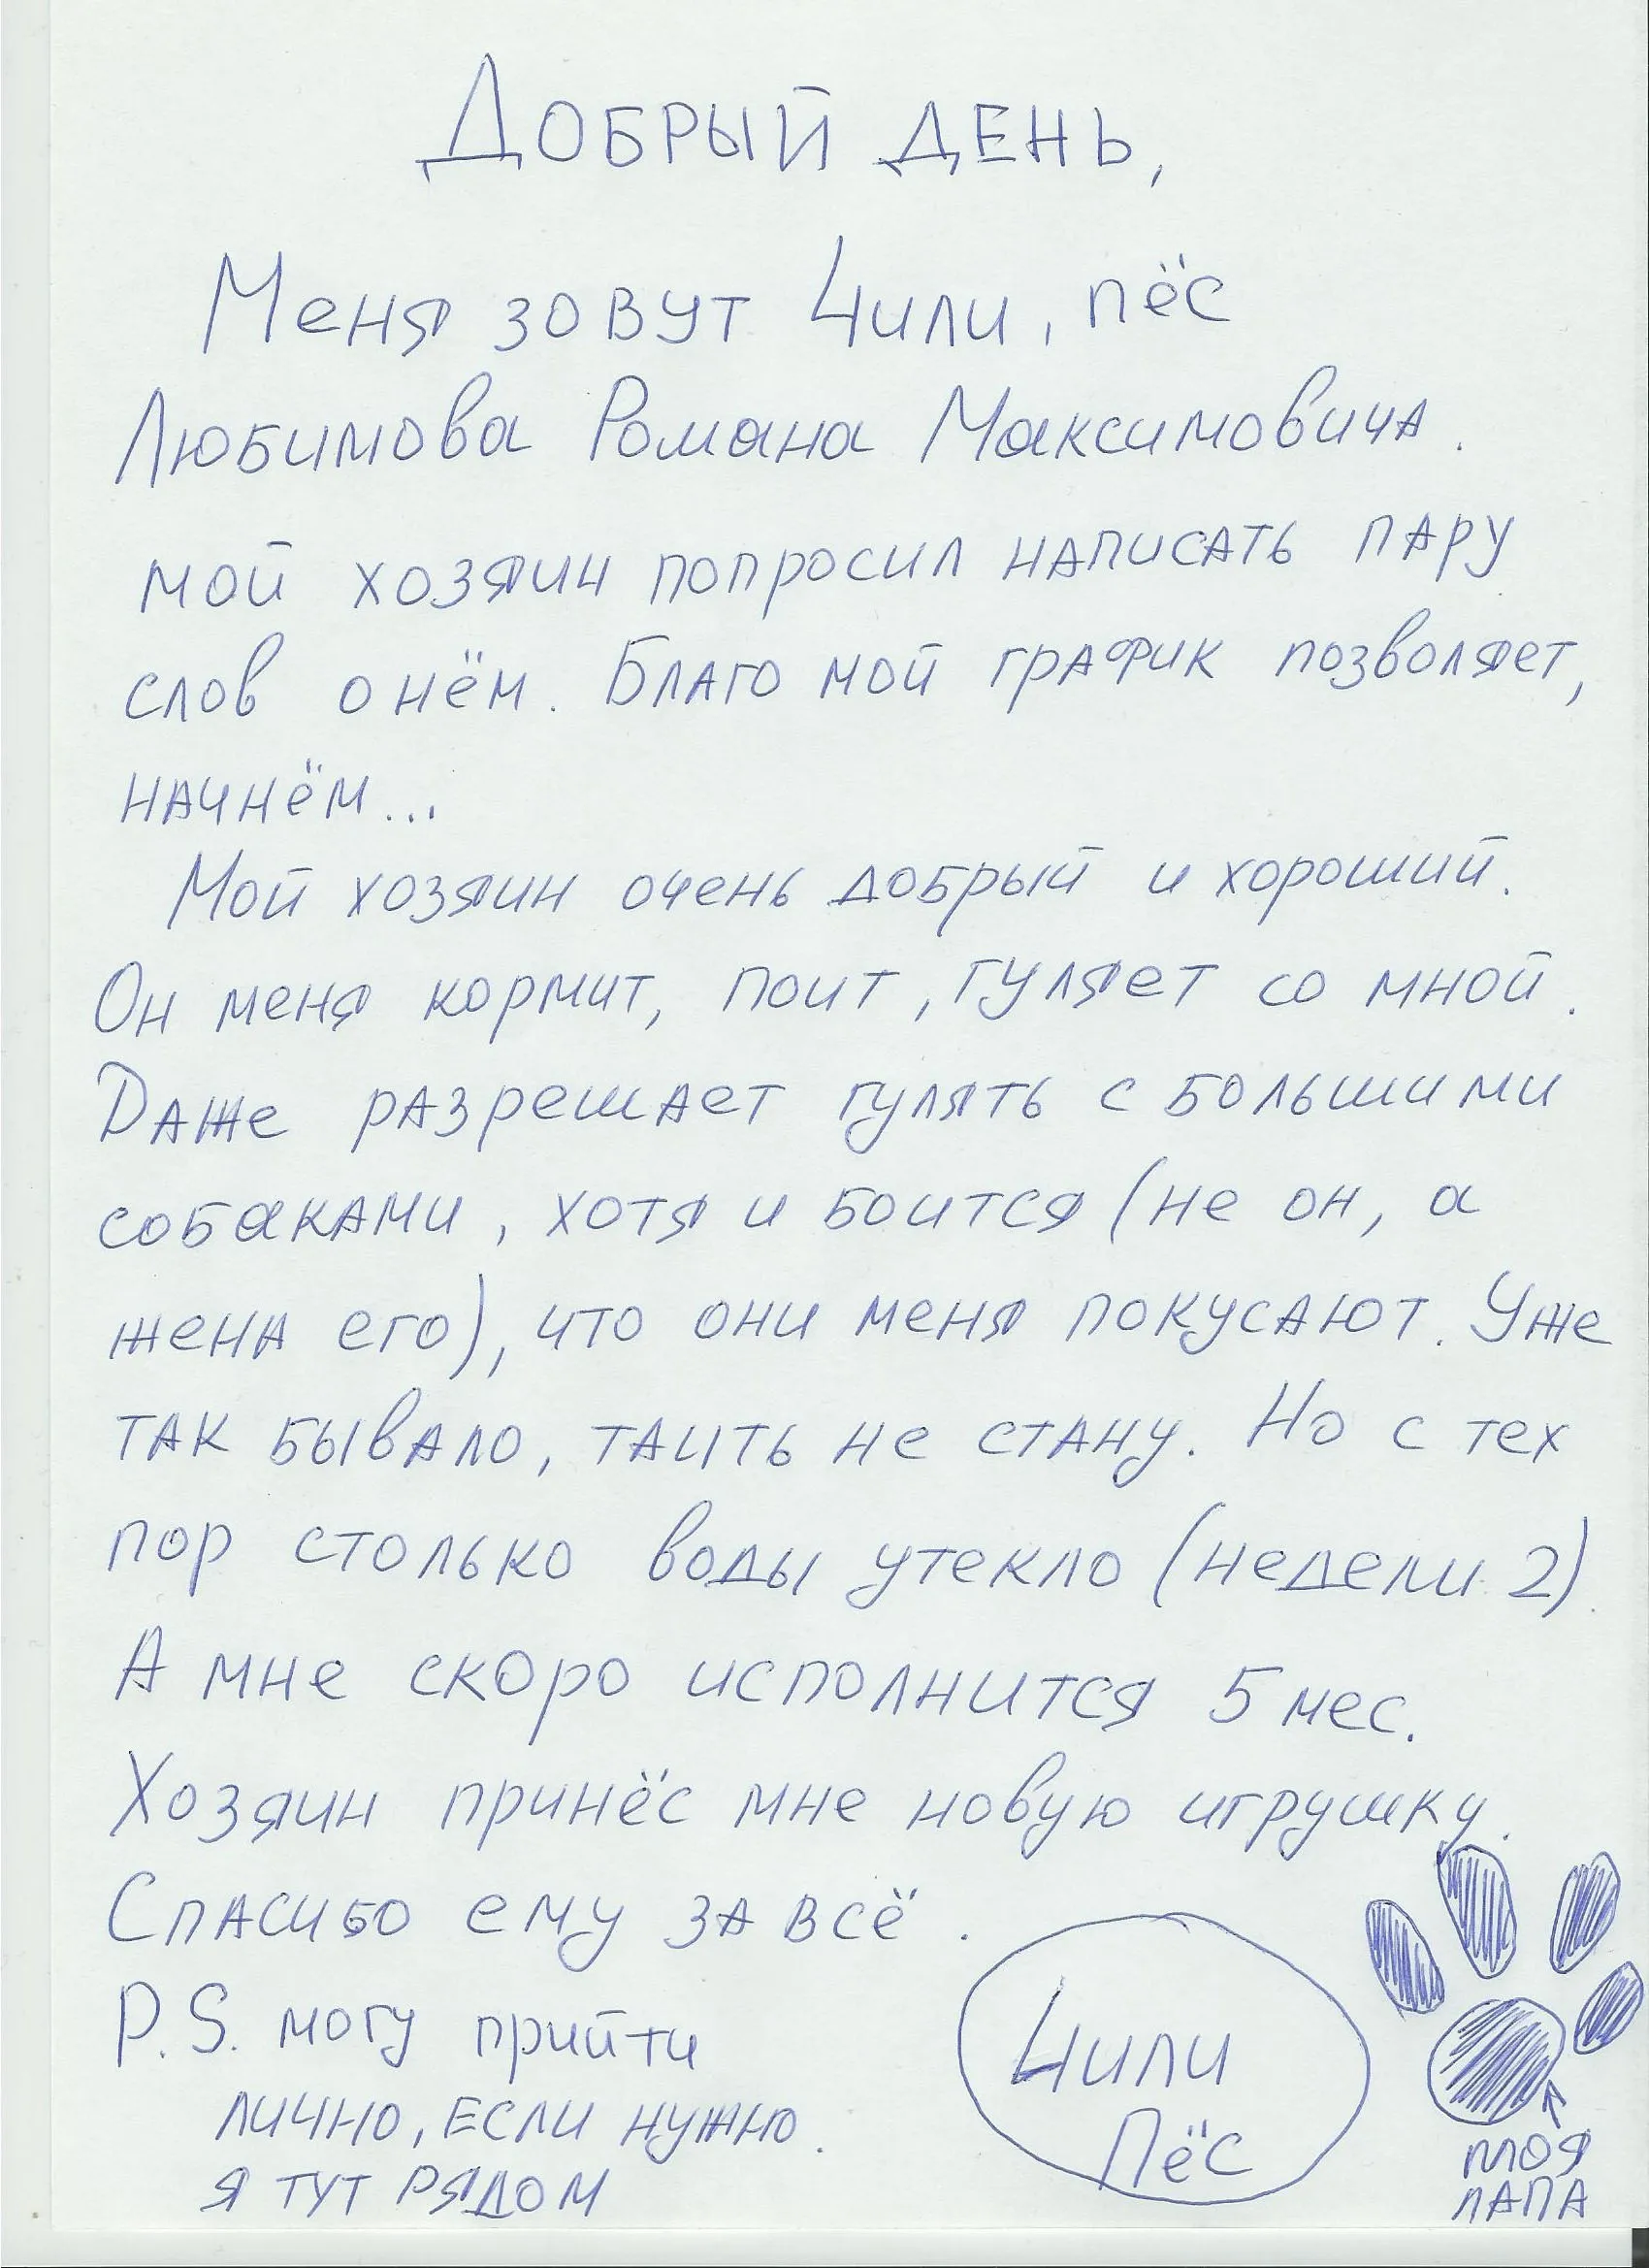 Добрый день,
Меня зовут Чили, пёс
Любимова Романа Максимовича.
мой хозяин попросил написать пару
слов о нём. Благо мой график позволяет,
начнём...
Мой хозяин очень добрый и хороший.
Он меня кормит, поит, гуляет со мной.
Даже разрешает гулять с большими
собаками, хотя и боится (не он, а
жена его), что они меня покусают. Уже
так бывало, таить не стану. Но с тех
пор столько воды утекло (недели 2).
А мне скоро исполнится 5 мес.
Хозяин принёс мне новую игрушку.
Спасибо ему за всё.
P.S. могу прийти
лично, если нужно.
я тут рядом
Чили
Пёс
моя
лапа